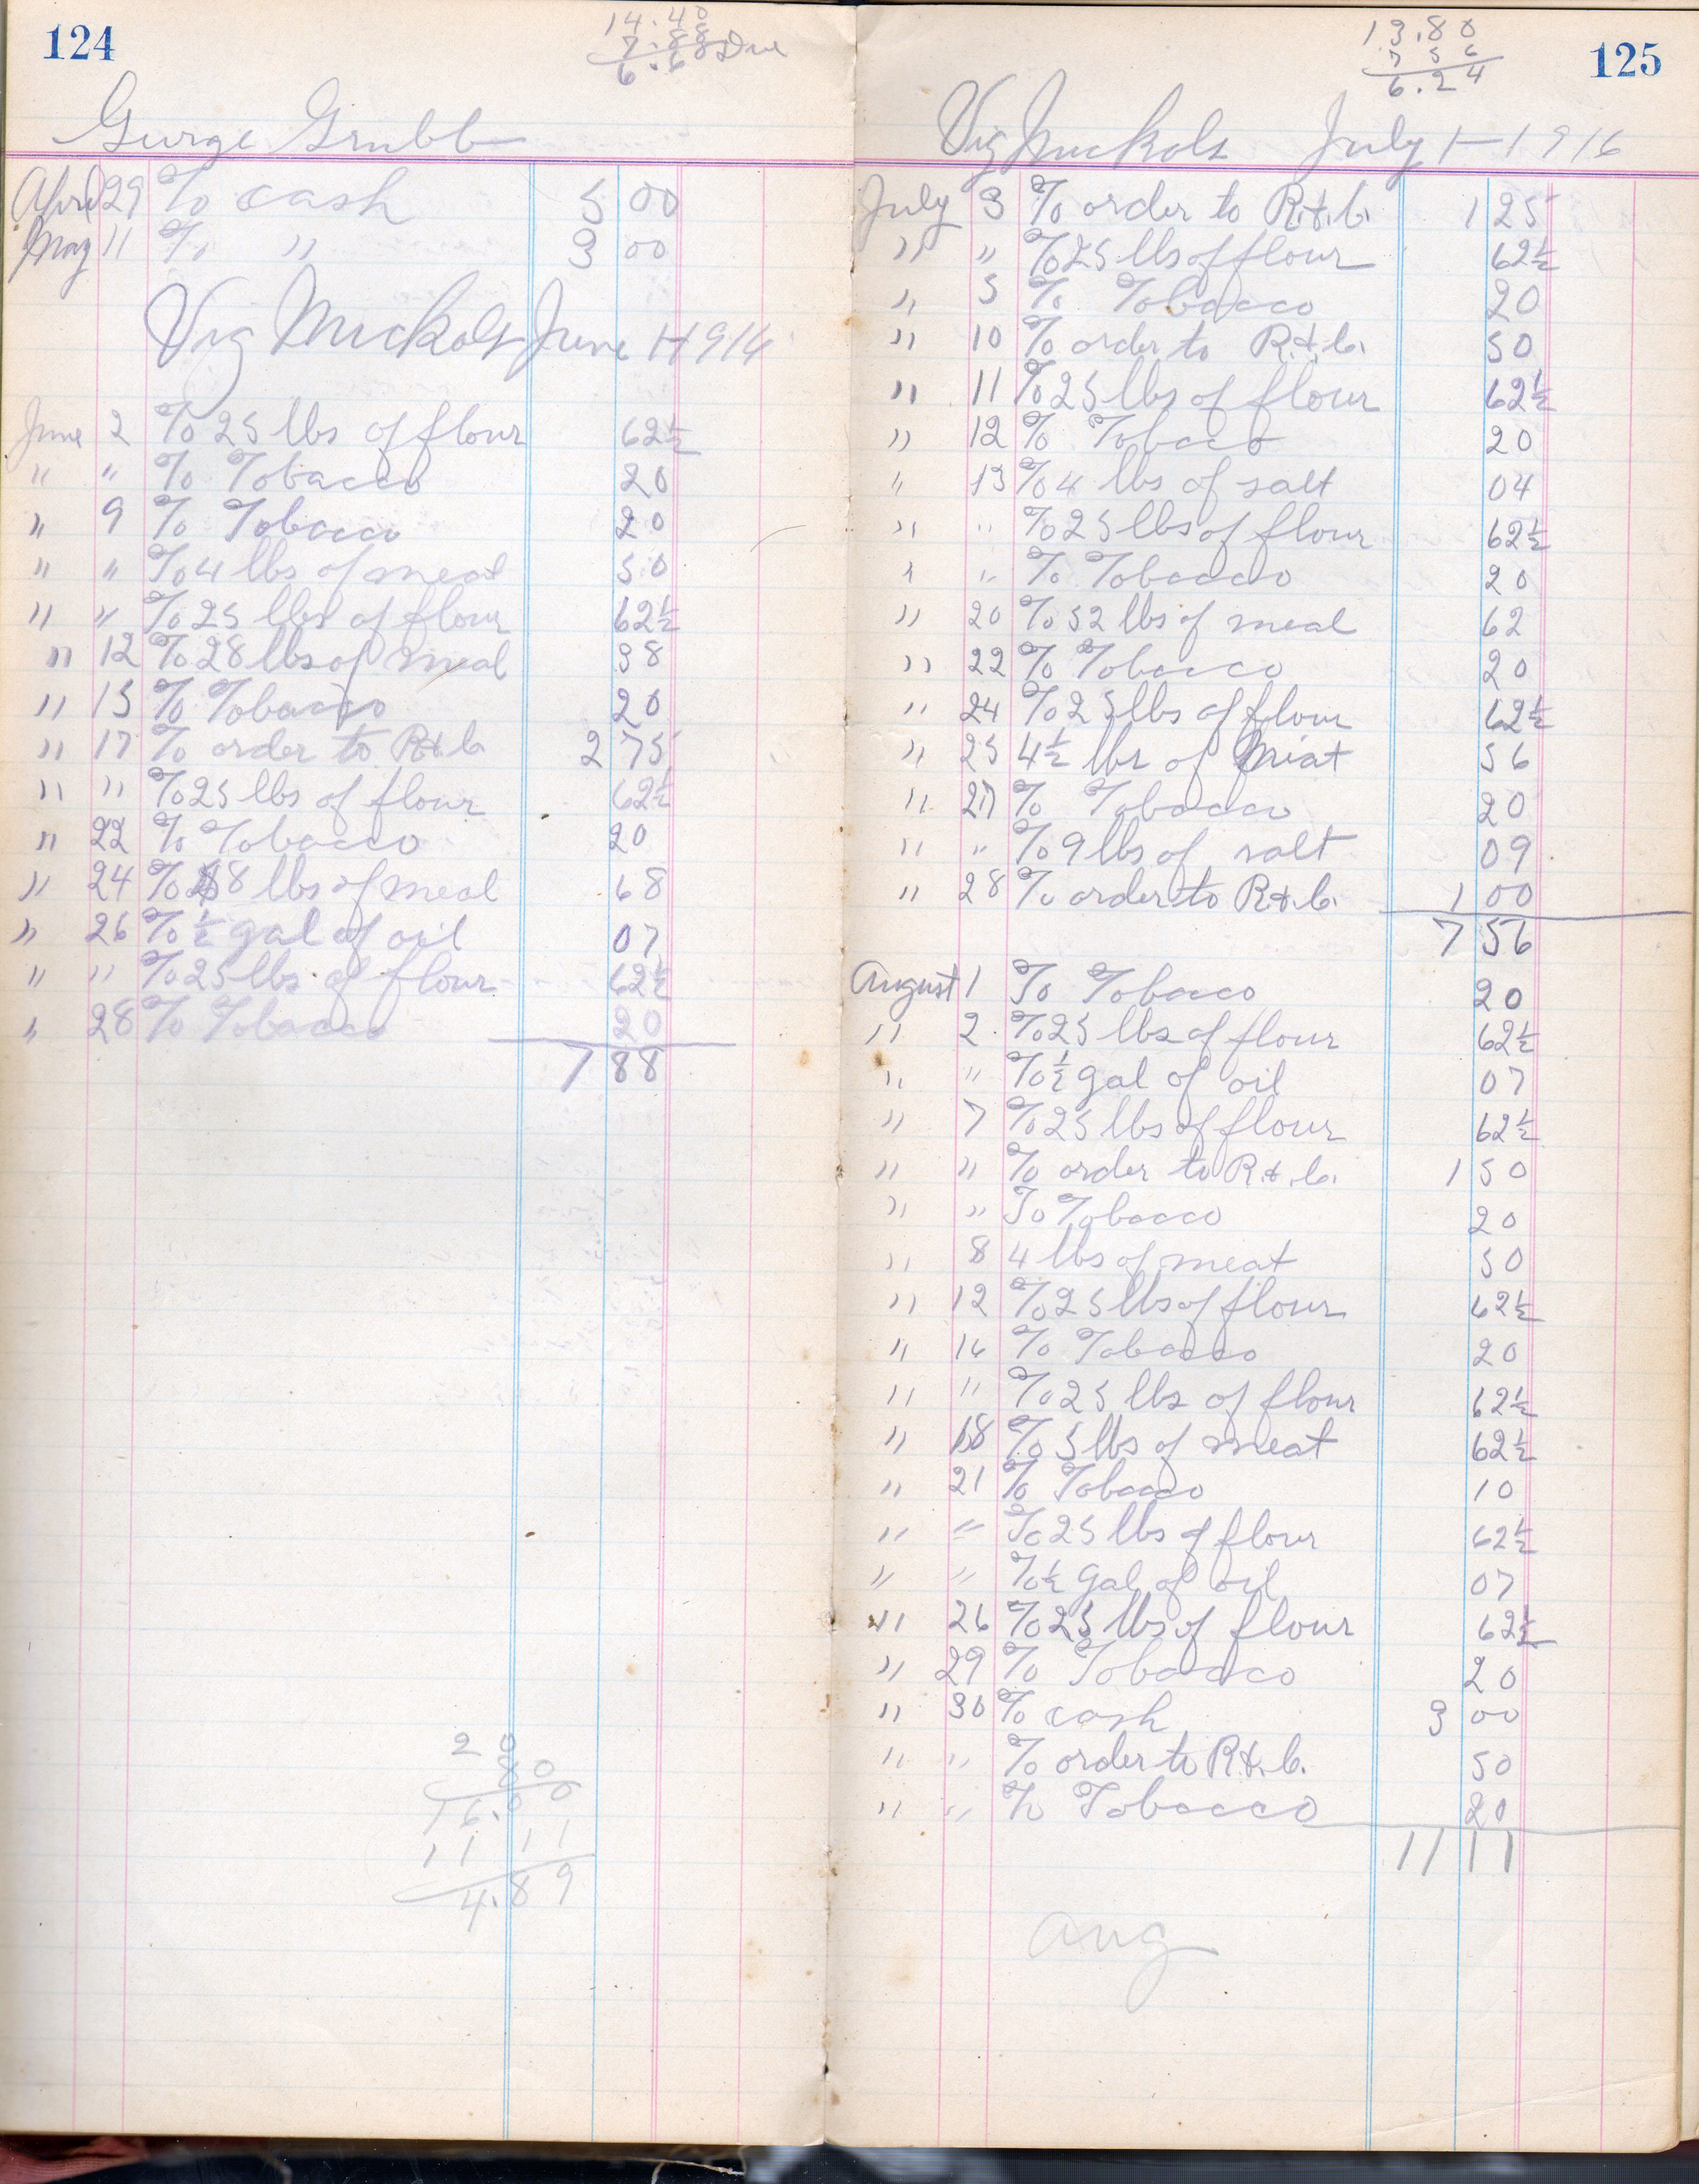 124
14.40
7.88
6.68 Due
Gurge Grubb
April 29 To cash 5 00
May 11 To " 3 00
Vig Nuckols June 1-1916
June 2 To 25 lbs of flour 62½
" " To Tobacco 20
" 9 To Tobacco 20
" " To 4 lbs of meat 50
" " To 25 lbs of flour 62½
" 12 To 28 lbs of meal 38
" 15 To Tobacco 20
" 17 To order to R.&.C. 2 75
" " To 25 lbs of flour 62½
" 22 To Tobacco 20
" 24 To 48 lbs of meal 68
" 26 To ½ gal of oil 07
" " To 25 lbs of flour 62½
" 28 To Tobacco 20
7 88
20
80
16.00
11 11
4.89
125
13.80
7 56
6.24
Vig Nuckols July 1-1916
July 3 To order to R.&.C. 1 25
" " To 25 lbs of flour 62½
" 5 To Tobacco 20
" 10 To order to R.&.C. 50
" 11 To 25 lbs of flour 62½
" 12 To Tobacco 20
" 13 To 4 lbs of salt 04
" " To 25 lbs of flour 62½
" " To Tobacco 20
" 20 To 52 lbs of meal 62
" 22 To Tobacco 20
" 24 To 25 lbs of flour 62½
" 25 4½ lbs of Meat 56
" 27 To Tobacco 20
" " To 9 lbs of salt 09
" 28 To order to R.&.C. 1 00
7 56
August 1 To Tobacco 20
" 2 To 25 lbs of flour 62½
" " To ½ gal of oil 07
" 7 To 25 lbs of flour 62½
" " To order to R.&.C. 1 50
" " To Tobacco 20
" 8 4 lbs of meat 50
" 12 To 25 lbs of flour 62½
" 16 To Tobacco 20
" " To 25 lbs of flour 62½
" 18 To 5 lbs of meat 62½
" 21 To Tobacco 10
" " To 25 lbs of flour 62½
" " To ½ gal of oil 07
" 26 To 25 lbs of flour 62½
" 29 To Tobacco 20
" 30 To cash 3 00
" " To order to R.&.C. 50
" " To Tobacco 20
11 11
Aug